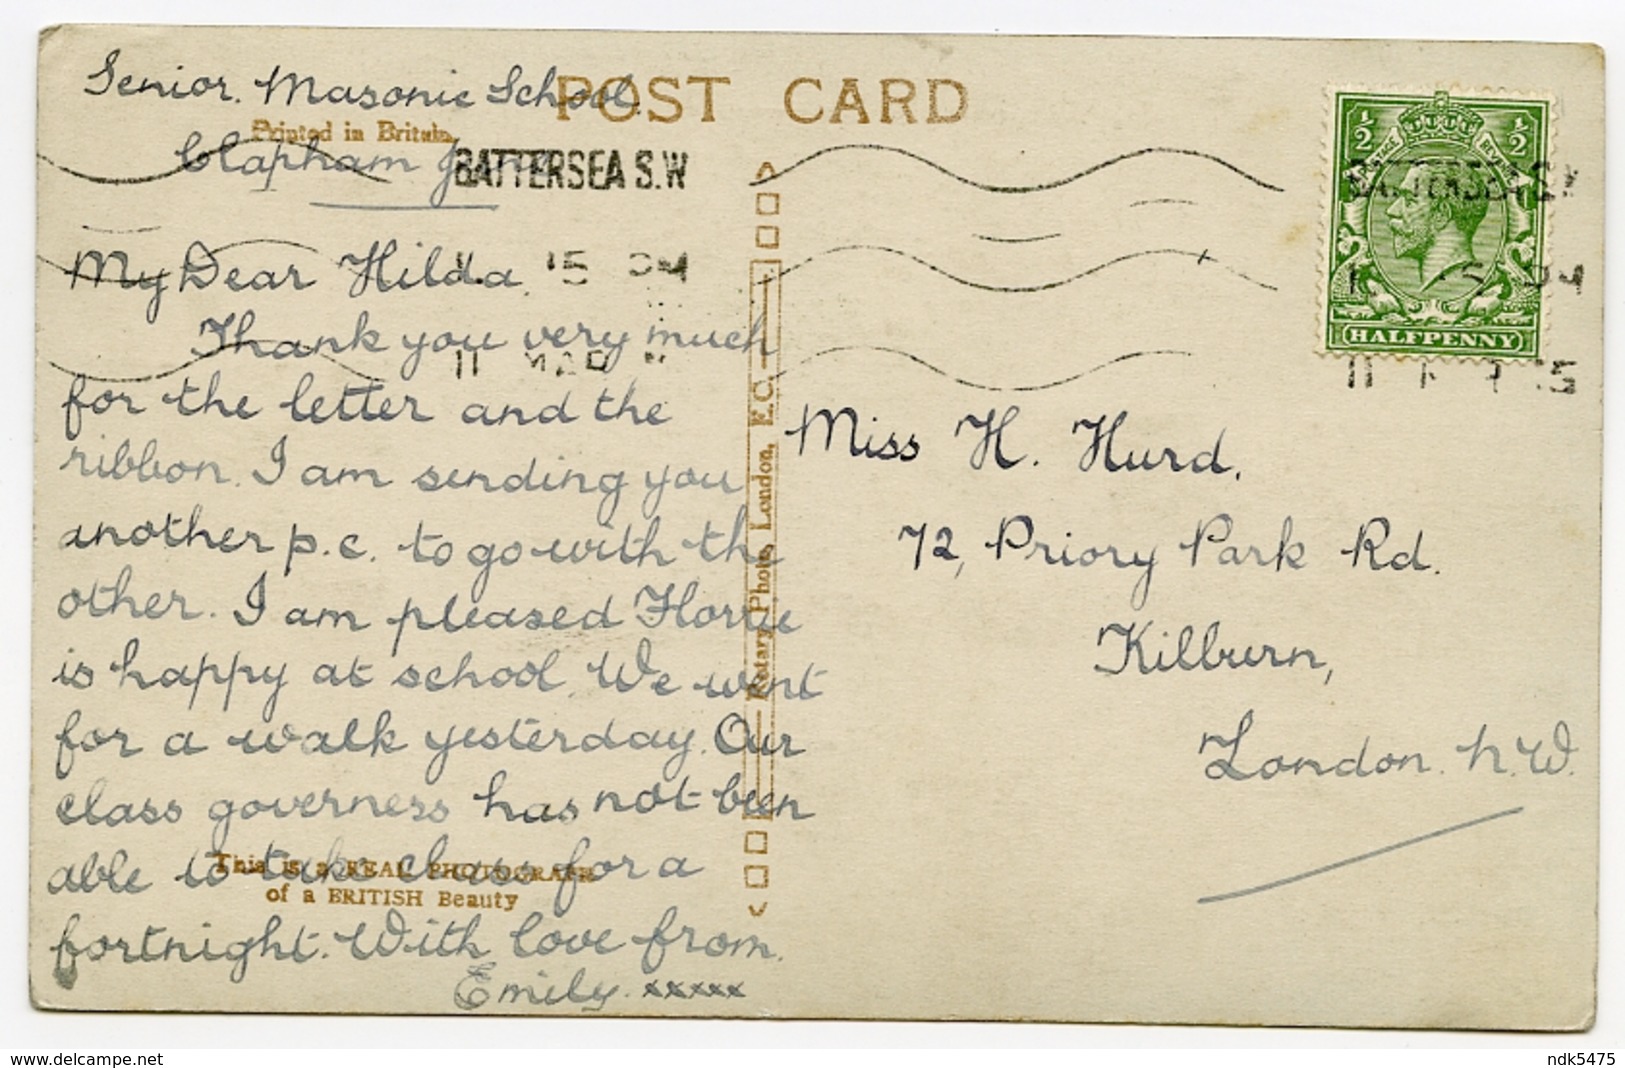 Senior. Masonic School.
Clapham Junc
POST CARD
Printed in Britain.
BATTERSEA S.W
15 PM
11 MAR
My Dear Hilda.
Thank you very much
for the letter and the
ribbon. I am sending you
another p.c. to go with the
other. I am pleased Horrie
is happy at school. We went
for a walk yesterday. Our
class governess has not been
able to take class for a
fortnight. With love from.
Emily. xxxxx
This is a REAL PHOTOGRAPH
of a BRITISH Beauty
Rotary Photo, London, E.C.
½ ½
POSTAGE REVENUE
HALFPENNY
BATTERSEA S.W
Miss H. Hurd.
72, Priory Park Rd.
Kilburn,
London. N.W.
delcampe.net
ndk5475